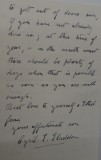 to get out of doors now,
if you have not already
done so, at this time of
year, in the next week
there should be plenty of
days when that is possible
as soon as you are well
enough.
Best love to yourself & Ethel
from
your affectionate son